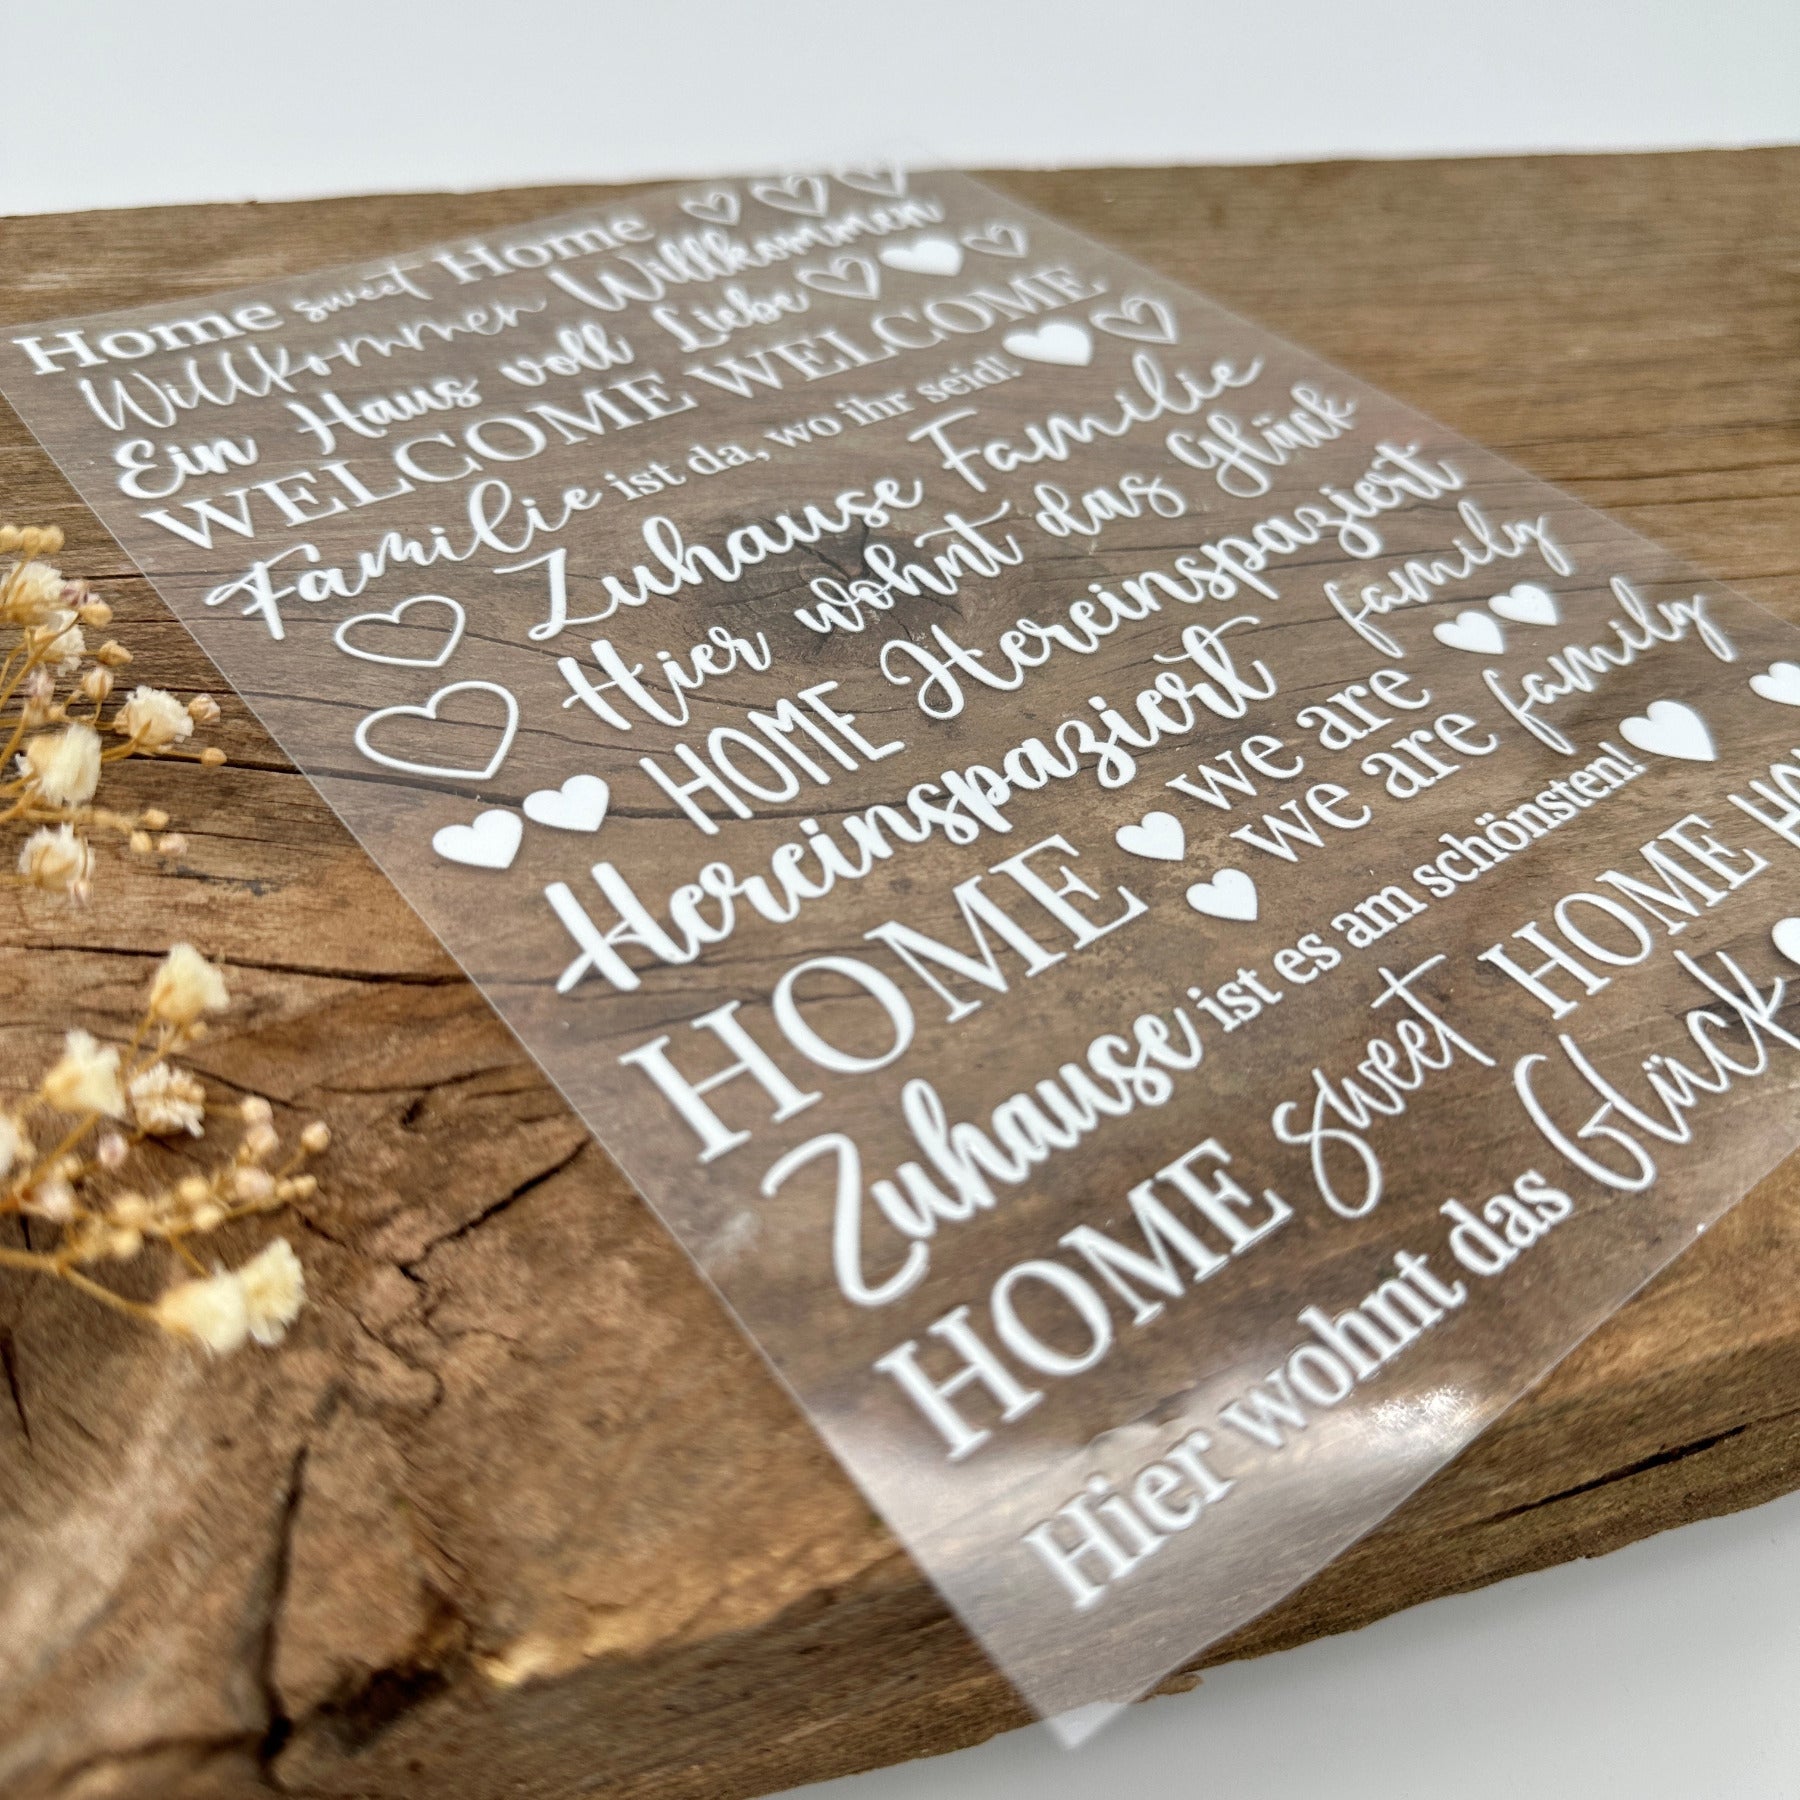 Home sweet Home
Willkommen Willkommen
Ein Haus voll Liebe
WELCOME WELCOME
Familie ist da, wo ihr seid!
Zuhause Familie
Hier wohnt das Glück
HOME Hereinspaziert
Hereinspaziert we are family
HOME we are family
Zuhause ist es am schönsten!
HOME sweet HOME HOME
Hier wohnt das Glück